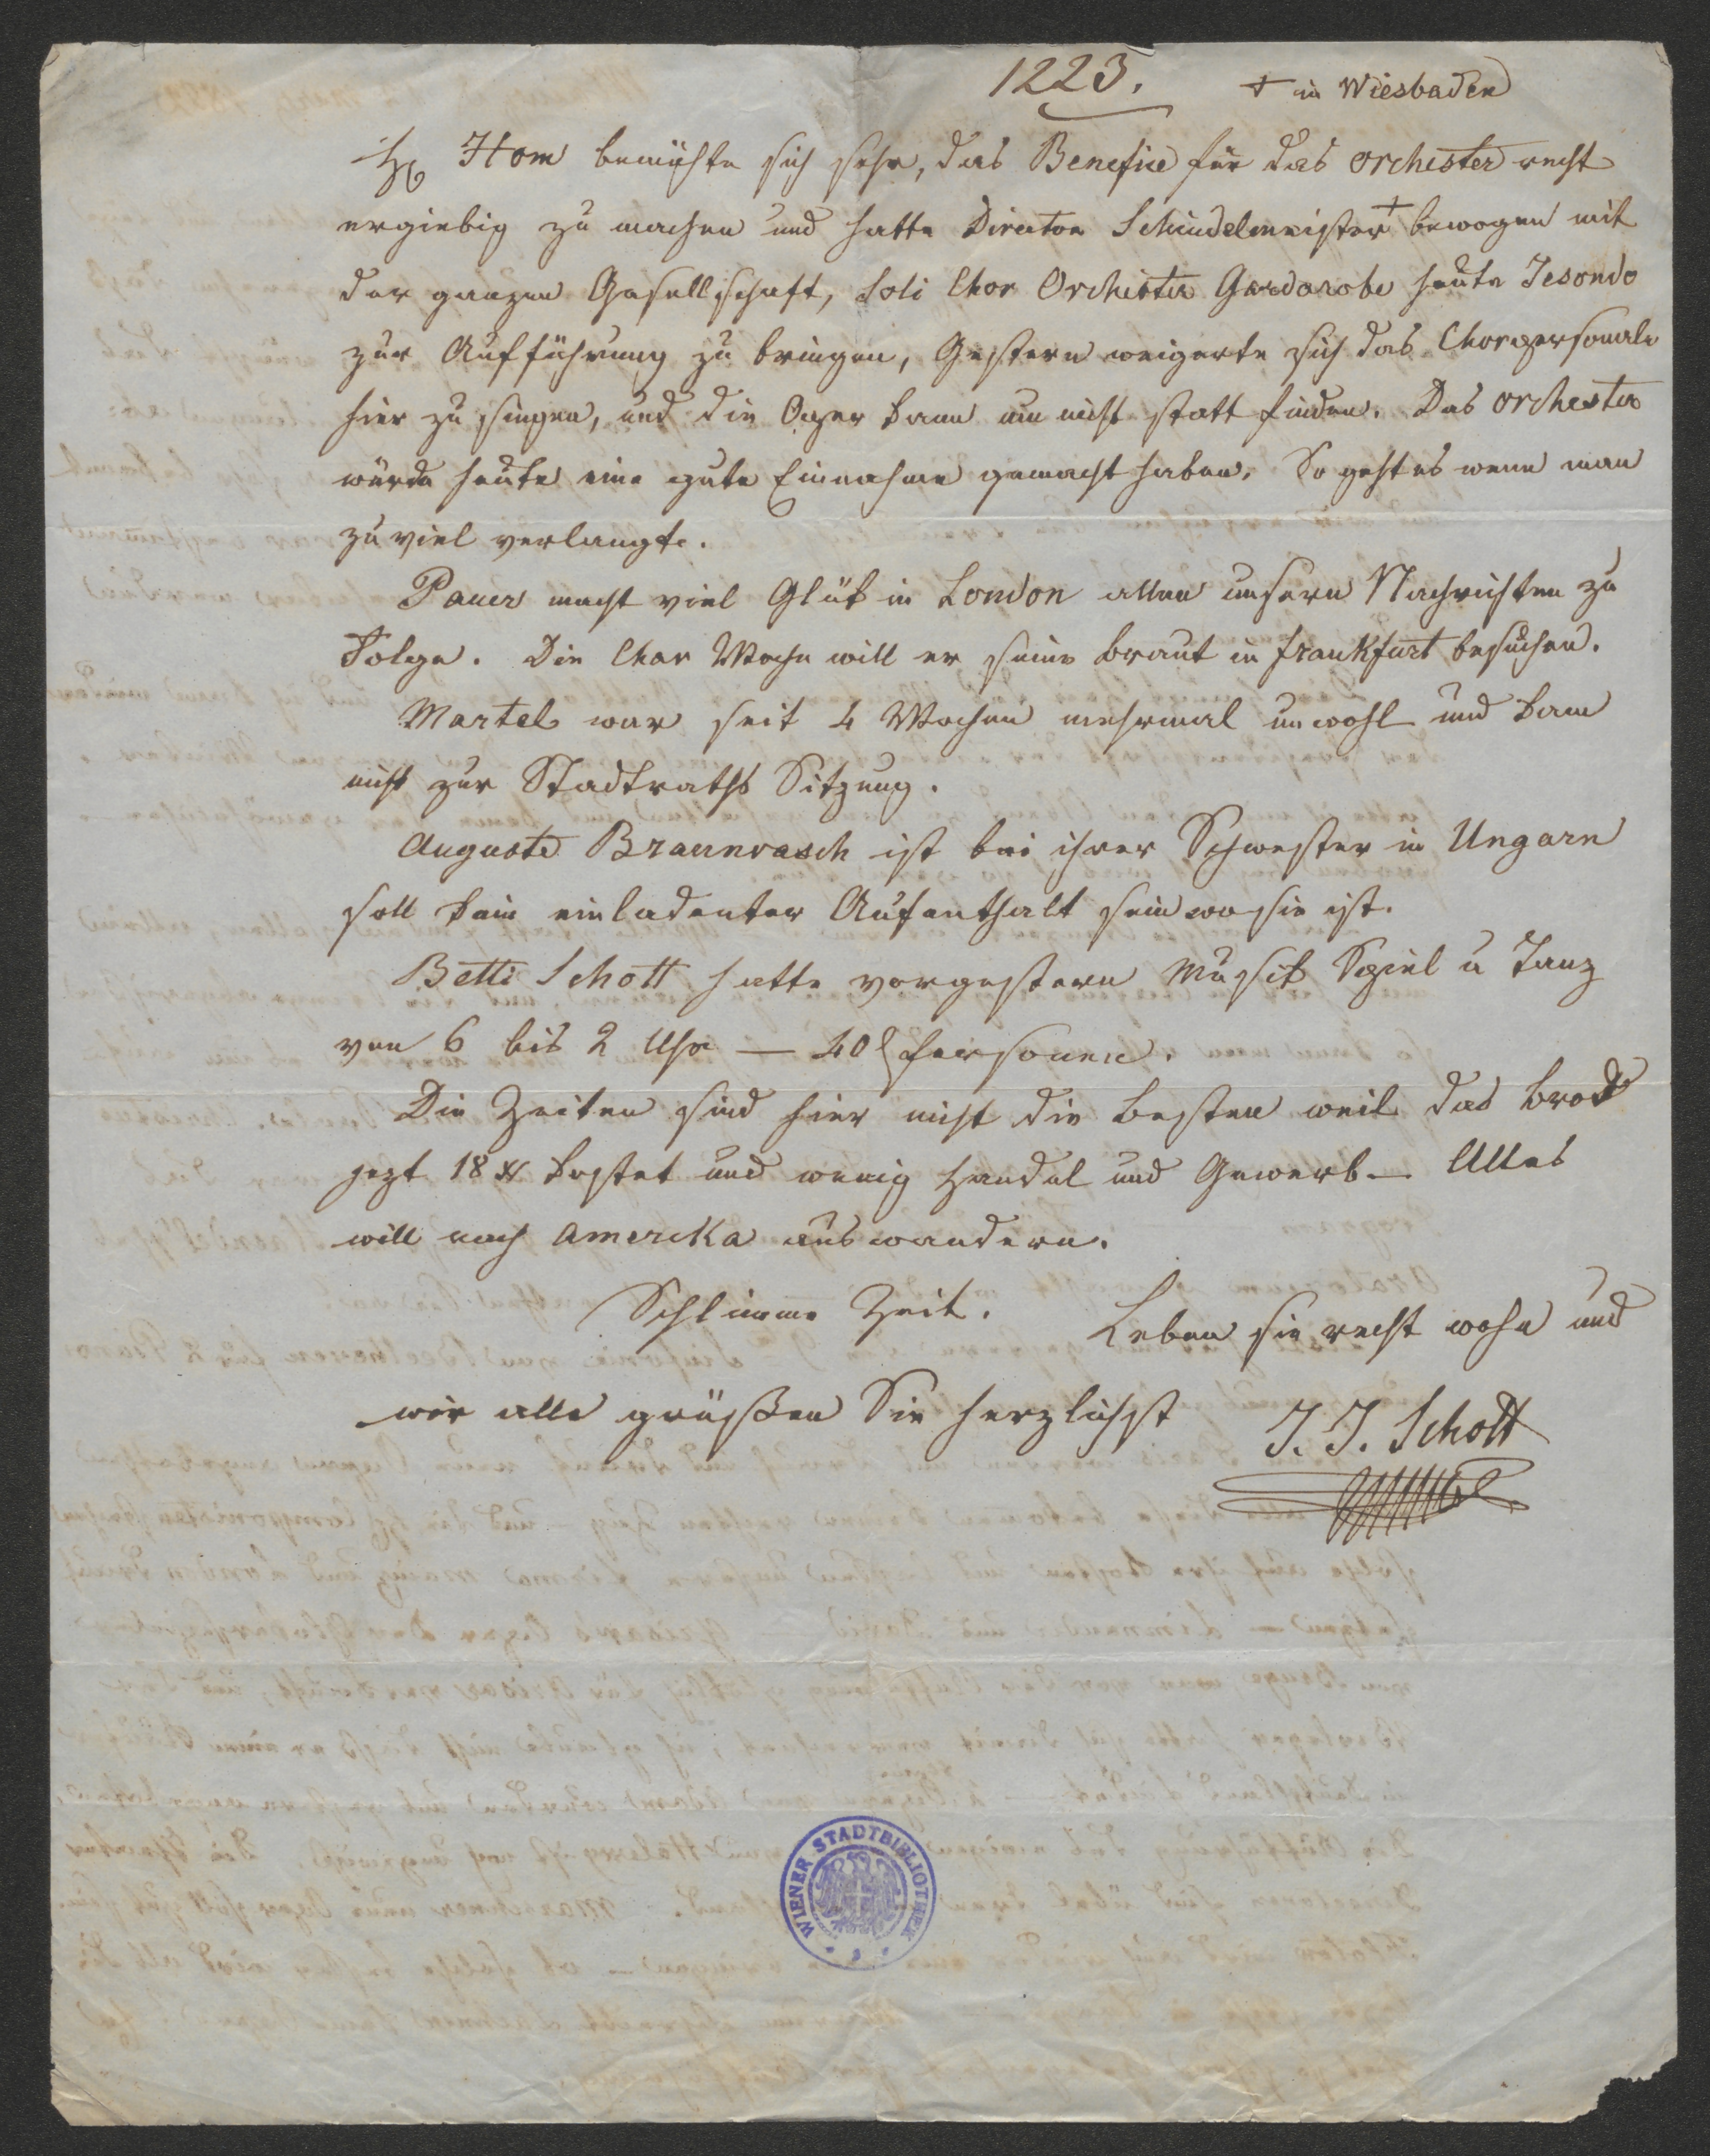 1223.
+ in Wiesbaden
H. Hom bemühte sich sehr, das Benefice für das Orchester recht
ergiebig zu machen und hatte Director Schindelmeisser + bewogen mit
der ganzen Gesellschaft, Soli Chor Orchester Gardarobe heute Jesondo
zur Aufführung zu bringen, Gestern weigerte sich das Chorpersonale
hier zu singen, und die Oper kann nun nicht statt finden. Das Orchester
würde heute eine gute Einnahme gemacht haben. So geht es wenn man
zu viel verlangt.
Pauer macht viel Glük in London allen unsern Nachrichten zu
Folge. Die Char Woche will er seine Braut in Frankfurt besuchen.
Martel war seit 4 Wochen mehrmal unwohl und kam
nicht zur Stadtraths Sitzung.
Auguste Braunrasch ist bei ihrer Schwester in Ungarn
soll kein einladenter Aufenthalt sein wo sie ist.
Betti Schott hatte vorgestern Musik Spiel u Tanz
von 6 bis 2 Uhr — 40 Personen.
Die Zeiten sind hier nicht die besten weil das Brod
jezt 18 x kostet und wenig Handel und Gewerb — Alles
will nach Amerika auswandern.
Schlimme Zeit.
Leben sie recht wohl und
wir alle grüßen Sie herzlichst
J. J. Schott
WIENER STADTBIBLIOTHEK